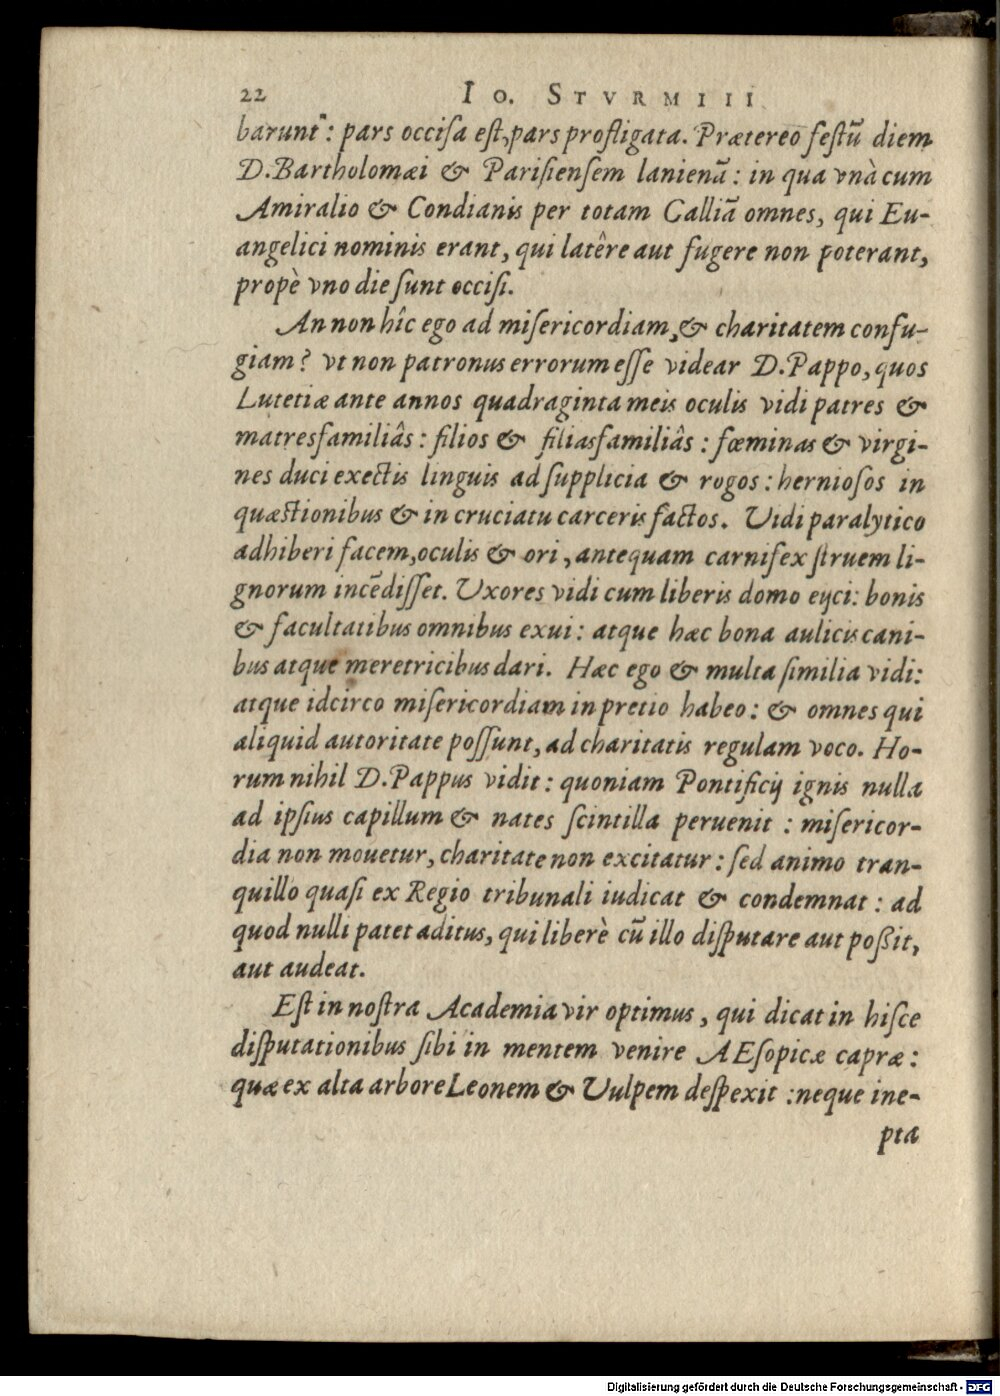 22 IO. STVRMIII
barunt: pars occiſa eſt, pars profligata. Prætereo feſtū diem
D. Bartholomæi & Pariſienſem lanienā: in qua vnà cum
Amiralio & Condianis per totam Galliā omnes, qui Eu-
angelici nominis erant, qui latêre aut fugere non poterant,
propè vno die ſunt occiſi.
An non hîc ego ad miſericordiam, & charitatem confu-
giam? vt non patronus errorum eſſe videar D. Pappo, quos
Lutetiæ ante annos quadraginta meis oculis vidi patres &
matresfamiliâs: filios & filiasfamiliâs: fœminas & virgi-
nes duci exectis linguis ad ſupplicia & rogos: hernioſos in
quæſtionibus & in cruciatu carceris factos. Vidi paralytico
adhiberi facem, oculis & ori, antequam carnifex ſtruem li-
gnorum incēdiſſet. Vxores vidi cum liberis domo eijci: bonis
& facultatibus omnibus exui: atque hæc bona aulicis cani-
bus atque meretricibus dari. Hæc ego & multa ſimilia vidi:
atque idcirco miſericordiam in pretio habeo: & omnes qui
aliquid autoritate poſſunt, ad charitatis regulam voco. Ho-
rum nihil D. Pappus vidit: quoniam Pontificij ignis nulla
ad ipſius capillum & nates ſcintilla peruenit: miſericor-
dia non mouetur, charitate non excitatur: ſed animo tran-
quillo quaſi ex Regio tribunali iudicat & condemnat: ad
quod nulli patet aditus, qui liberè cū illo diſputare aut poßit,
aut audeat.
Eſt in noſtra Academia vir optimus, qui dicat in hiſce
diſputationibus ſibi in mentem venire AEſopicæ capræ:
quæ ex alta arbore Leonem & Vulpem deſpexit: neque ine-
pta
Digitalisierung gefördert durch die Deutsche Forschungsgemeinschaft - DFG